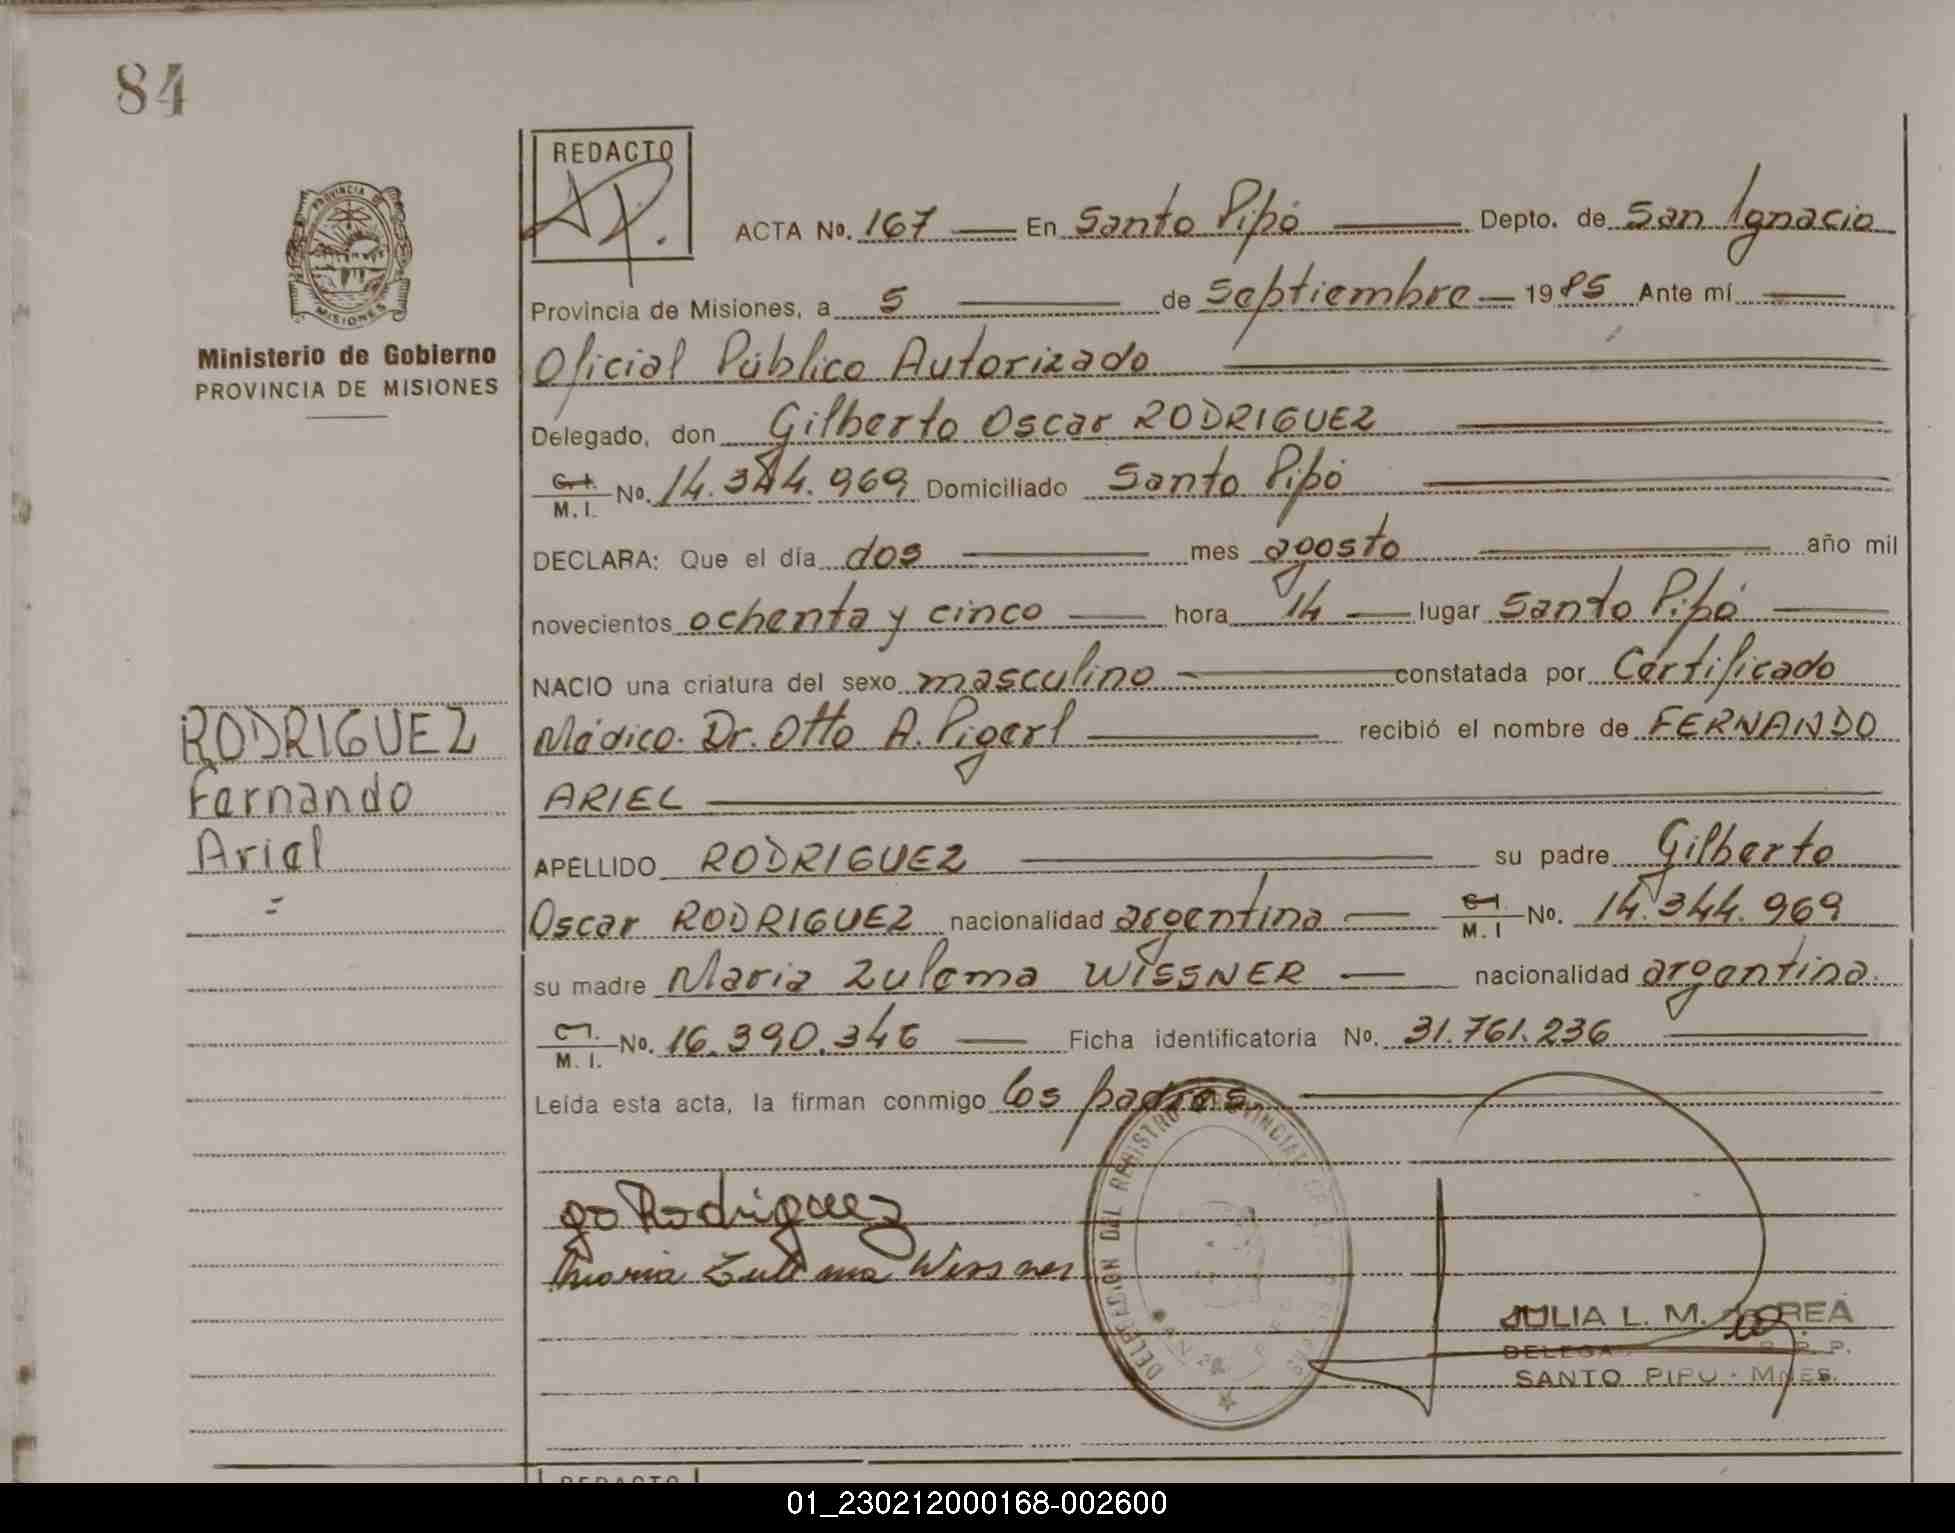 84
REDACTO
ACTA Nº. 167 En Santo Pipó Depto. de San Ignacio
Provincia de Misiones, a 5 de Septiembre 1985 Ante mí
Oficial Público Autorizado
Delegado, don Gilberto Oscar RODRIGUEZ
C.I. M.I. Nº. 14.344.969 Domiciliado Santo Pipó
DECLARA: Que el día dos mes agosto año mil
novecientos ochenta y cinco hora 14 lugar Santo Pipó
NACIO una criatura del sexo masculino constatada por Certificado
Médico. Dr. Otto A. Pigerl recibió el nombre de FERNANDO
ARIEL
APELLIDO RODRIGUEZ su padre Gilberto
Oscar RODRIGUEZ nacionalidad argentina C.I. M.I Nº. 14.344.969
su madre Maria Zulema WISSNER nacionalidad argentina.
C.I. M.I. Nº. 16.390.346 Ficha identificatoria Nº. 31.761.236
Leída esta acta, la firman conmigo los padres
go Rodriguez
Maria Zulema Wissner
PROVINCIA DE
MISIONES
Ministerio de Gobierno
PROVINCIA DE MISIONES
RODRIGUEZ
Fernando
Ariel
DELEGACION DEL REGISTRO PROVINCIAL DE
JULIA L. M.
SANTO PIPO - MNES.
REDACTO
01_230212000168-002600